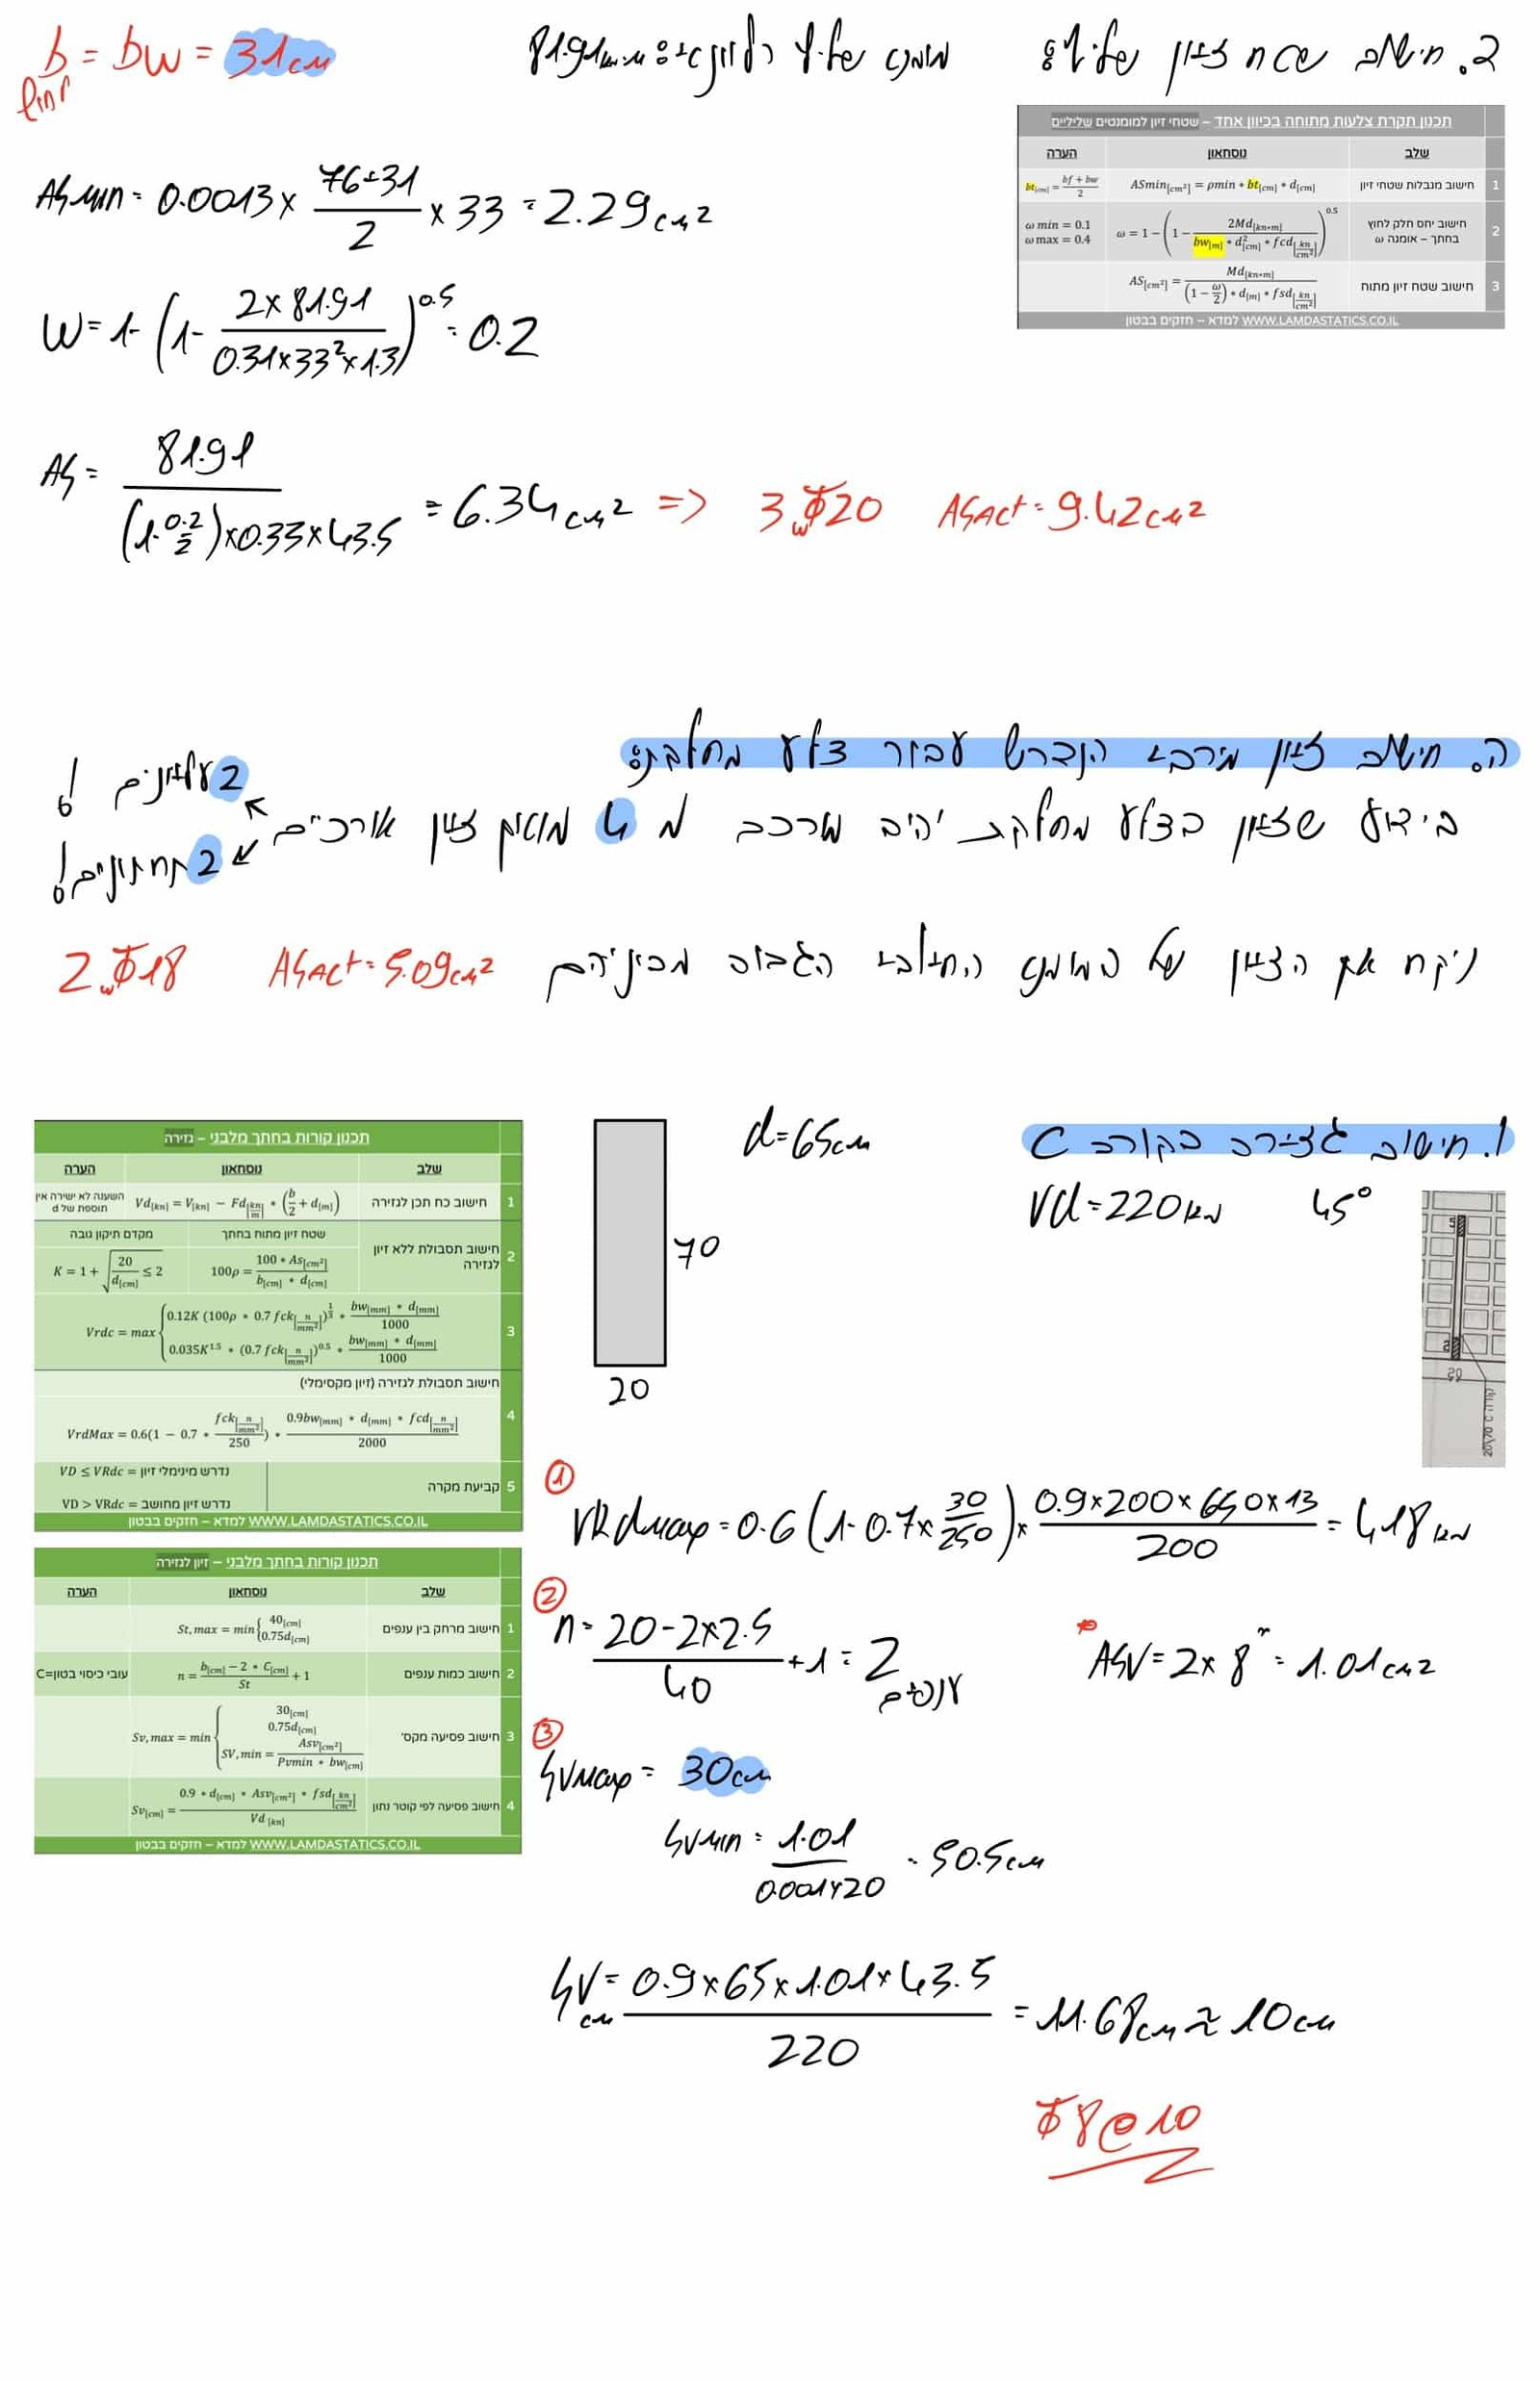 2. חישוב שטח זיון שלילי:
מומנט שלילי רלוונטי: 81.91
b = bw = 31cm
As min = 0.0013 × (76+31)/2 × 33 = 2.29cm²
W = 1-(1- (2×81.91)/(0.31×33²×1.3))^0.5 = 0.2
As = 81.91/((1-0.2/2)×0.33×43.5) = 6.34cm² => 3Φ20 AsAct = 9.42cm²
תכנון תקרת צלעות מתוחה בכיוון אחד – שטחי זיון למומנטים שליליים
שלב נוסחאון הערה
1 חישוב מגבלות שטחי זיון ASmin[cm²] = ρmin * bt[cm] * d[cm] bt[cm] = (bf + bw)/2
2 חישוב יחס חלק לחוץ בחתך – אומגה ω ω = 1 − (1 − 2Md[kn*m]/(bw[m] * d²[cm] * fcd[kn/cm²]))^0.5 ω min = 0.1 ω max = 0.4
3 חישוב שטח זיון מתוח AS[cm²] = Md[kn*m]/((1 − ω/2) * d[m] * fsd[kn/cm²])
WWW.LAMDASTATICS.CO.IL למדא – חזקים בבטון
ה. חישוב זיון מירבי הנדרש עבור צלע מחלקת:
בידוע שזיון בצלע מחלקת יהיה מורכב מ 4 מוטות זיון אורכיים
2 עליונים!
2 תחתונים!
ניקח את הזיון של המומנט החיובי הגבוה מביניהם
2Φ18 AsAct = 5.09cm²
ו. חישוב גזירה בקורה C
Vd = 220kN 45°
d = 65cm
70
20
5
2
20
קורה C 20/70
תכנון קורות בחתך מלבני – גזירה
שלב נוסחאון הערה
1 חישוב כח תכן לגזירה Vd[kn] = V[kn] − Fd[kn/m] * (b/2 + d[m]) השענה לא ישירה אין תוספת של d
2 חישוב תסבולת ללא זיון לגזירה שטח זיון מתוח בחתך מקדם תיקון גובה
100ρ = 100 * As[cm²]/(b[cm] * d[cm]) K = 1 + √(20/d[cm]) ≤ 2
3 Vrdc = max { 0.12K (100ρ * 0.7 fck[n/mm²])^1/3 * bw[mm] * d[mm]/1000
0.035K^1.5 * (0.7 fck[n/mm²])^0.5 * bw[mm] * d[mm]/1000
4 חישוב תסבולת לגזירה (זיון מקסימלי)
VrdMax = 0.6(1 − 0.7 * fck[n/mm²]/250) * 0.9bw[mm] * d[mm] * fcd[n/mm²]/2000
5 קביעת מקרה VD ≤ VRdc = נדרש מינימלי זיון
VD > VRdc = נדרש זיון מחושב
WWW.LAMDASTATICS.CO.IL למדא – חזקים בבטון
תכנון קורות בחתך מלבני – זיון לגזירה
שלב נוסחאון הערה
1 חישוב מרחק בין ענפים St, max = min { 40[cm] 0.75d[cm]
2 חישוב כמות ענפים n = (b[cm] − 2 * C[cm])/St + 1 עובי כיסוי בטון=C
3 חישוב פסיעה מקס' Sv, max = min { 30[cm] 0.75d[cm] SV, min = Asv[cm²]/(Pvmin * bw[cm])
4 חישוב פסיעה לפי קוטר נתון Sv[cm] = 0.9 * d[cm] * Asv[cm²] * fsd[kn/cm²]/Vd [kn]
WWW.LAMDASTATICS.CO.IL למדא – חזקים בבטון
① VRdmax = 0.6(1-0.7×30/250)× (0.9×200×650×13)/200 = 418kN
② n = (20-2×2.5)/40 + 1 = 2 ענפים
ASV = 2×8 = 1.01cm²
③ SVmax = 30cm
SVmin = 1.01/(0.001×20) = 50.5cm
SV cm = (0.9×65×1.01×43.5)/220 = 11.68cm ≈ 10cm
Φ8@10